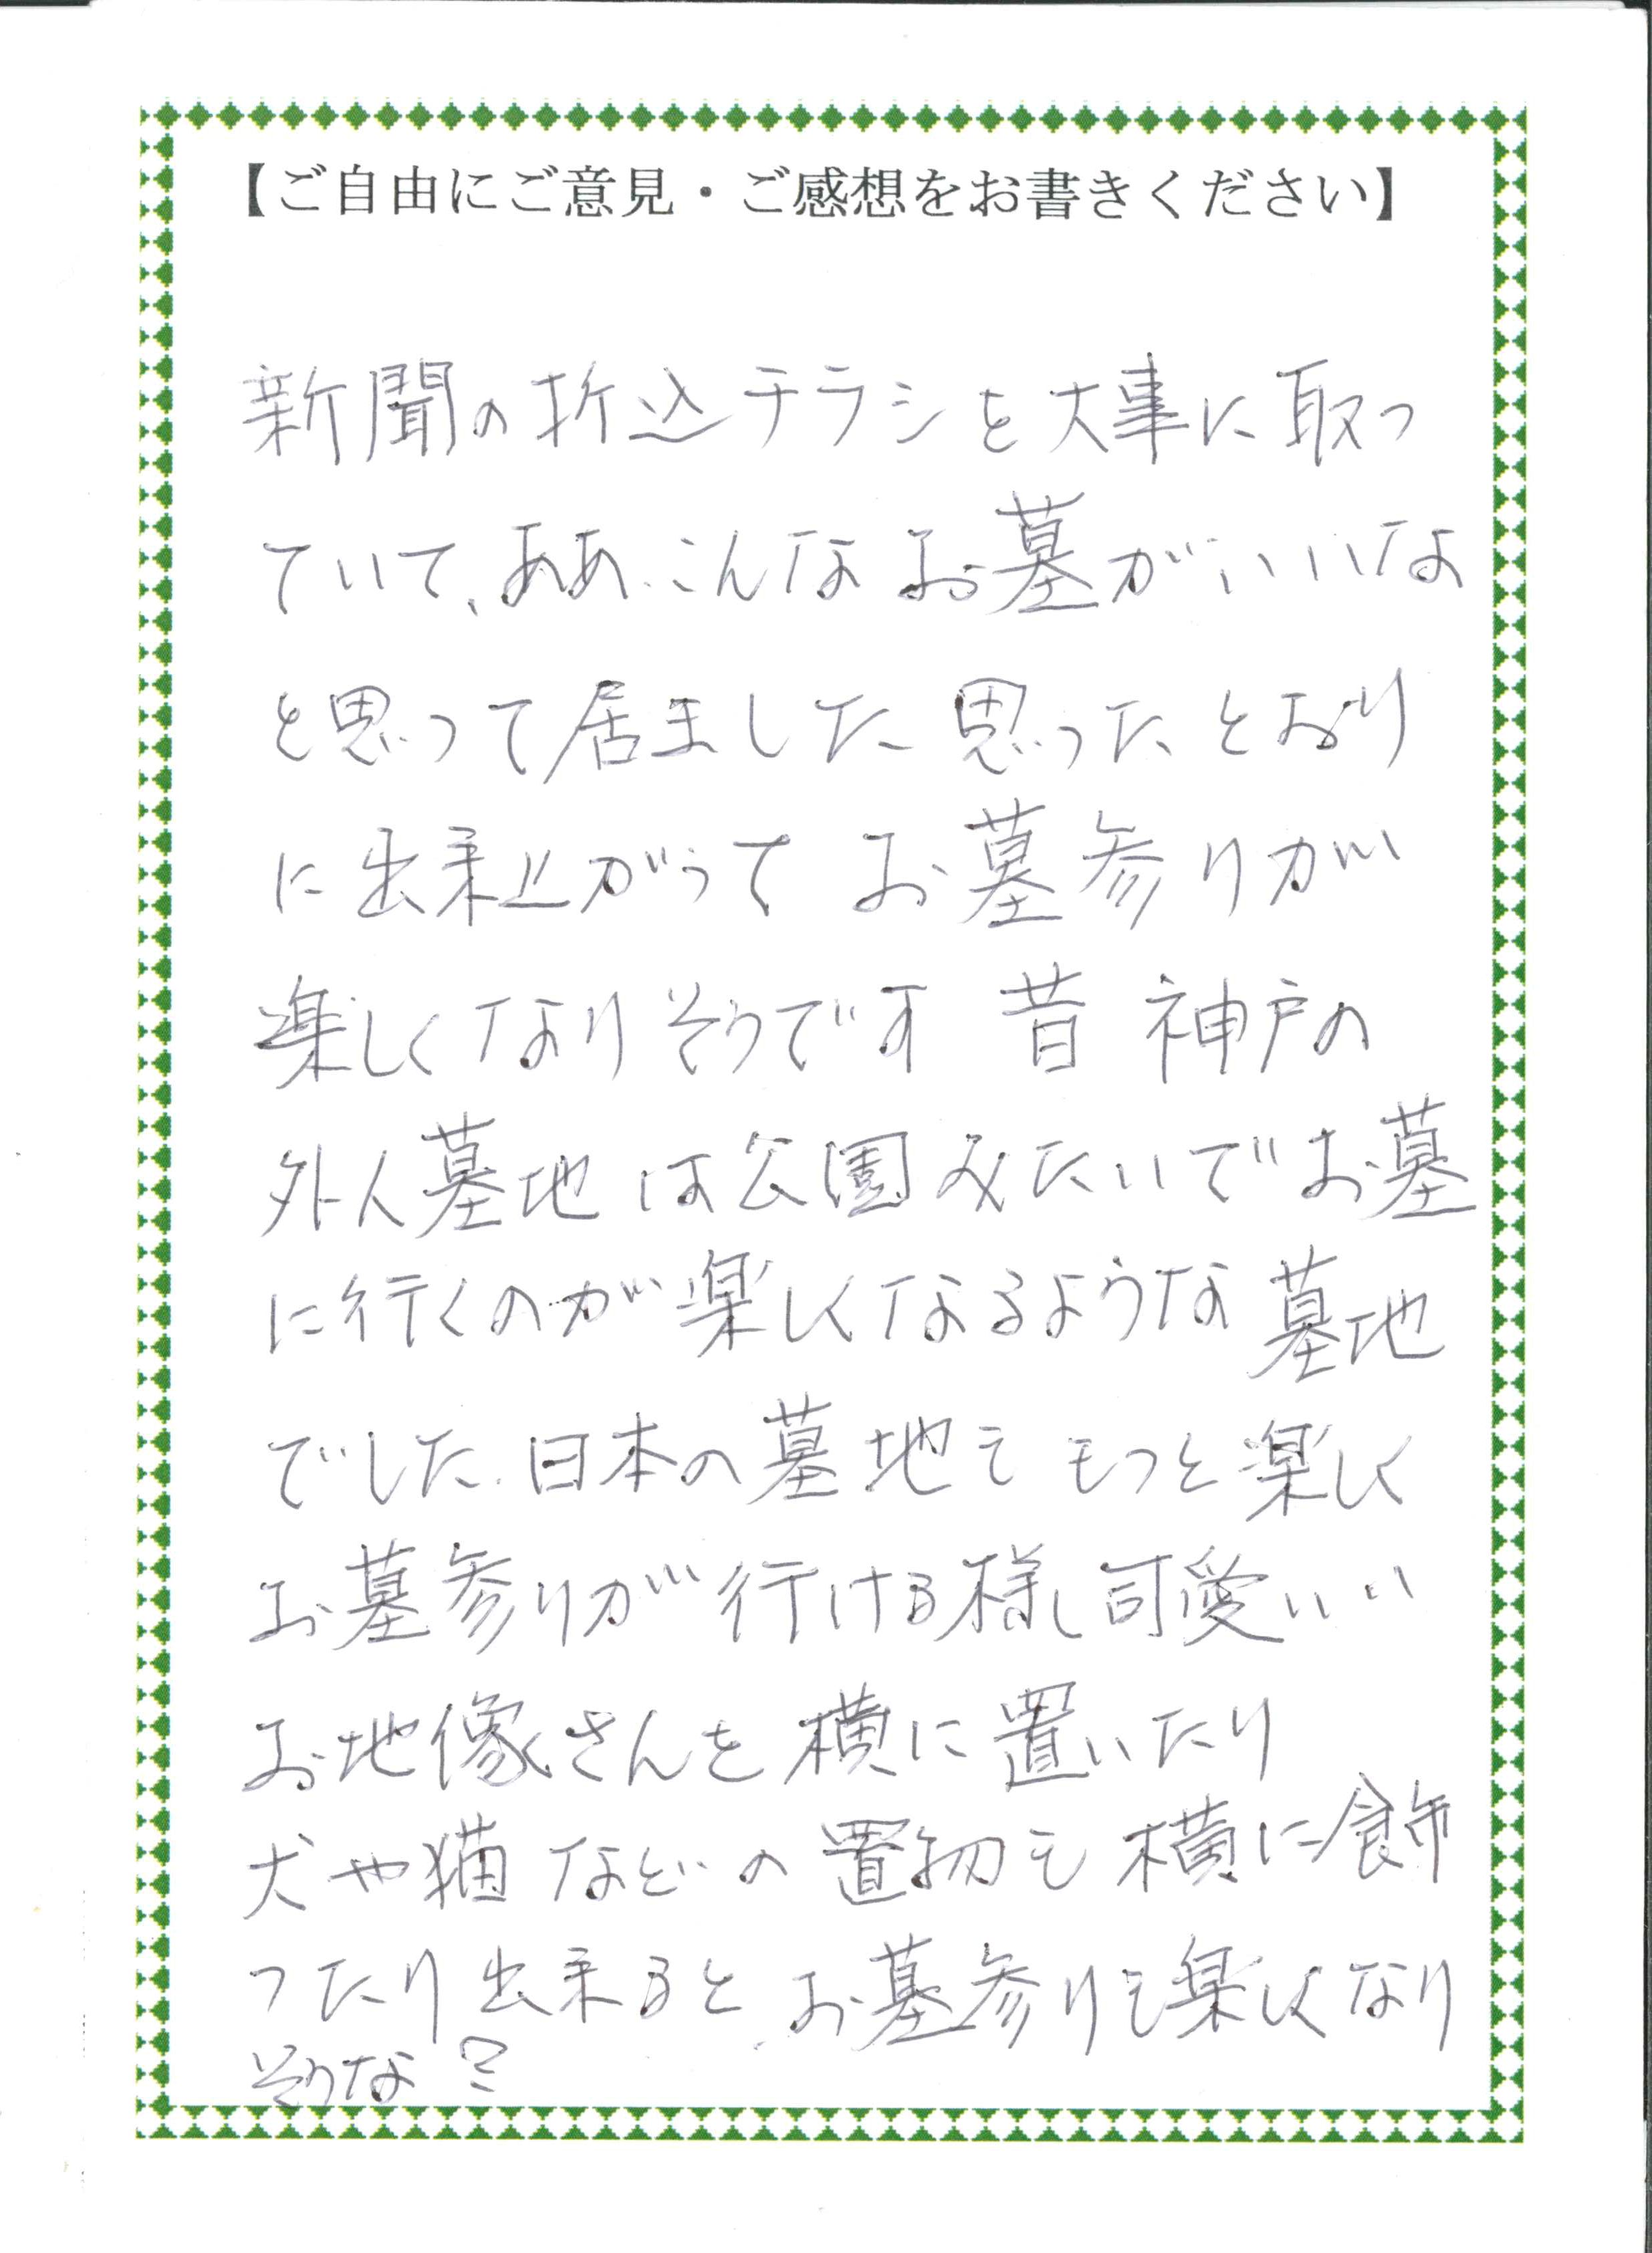 【ご自由にご意見・ご感想をお書きください】
新聞の折込チラシを大事に取っ
ていて、ああ、こんなお墓がいいな
と思って居ました 思ったとおり
に出来上がって お墓参りが
楽しくなりそうです 昔 神戸の
外人墓地は公園みたいでお墓
に行くのが楽しくなるような墓地
でした. 日本の墓地も もっと楽しく
お墓参りが行ける様し可愛いい
お地像さんを横に置いたり
犬や猫などの置物も横に飾
ったり出来ると お墓参りも楽しくなり
そうな